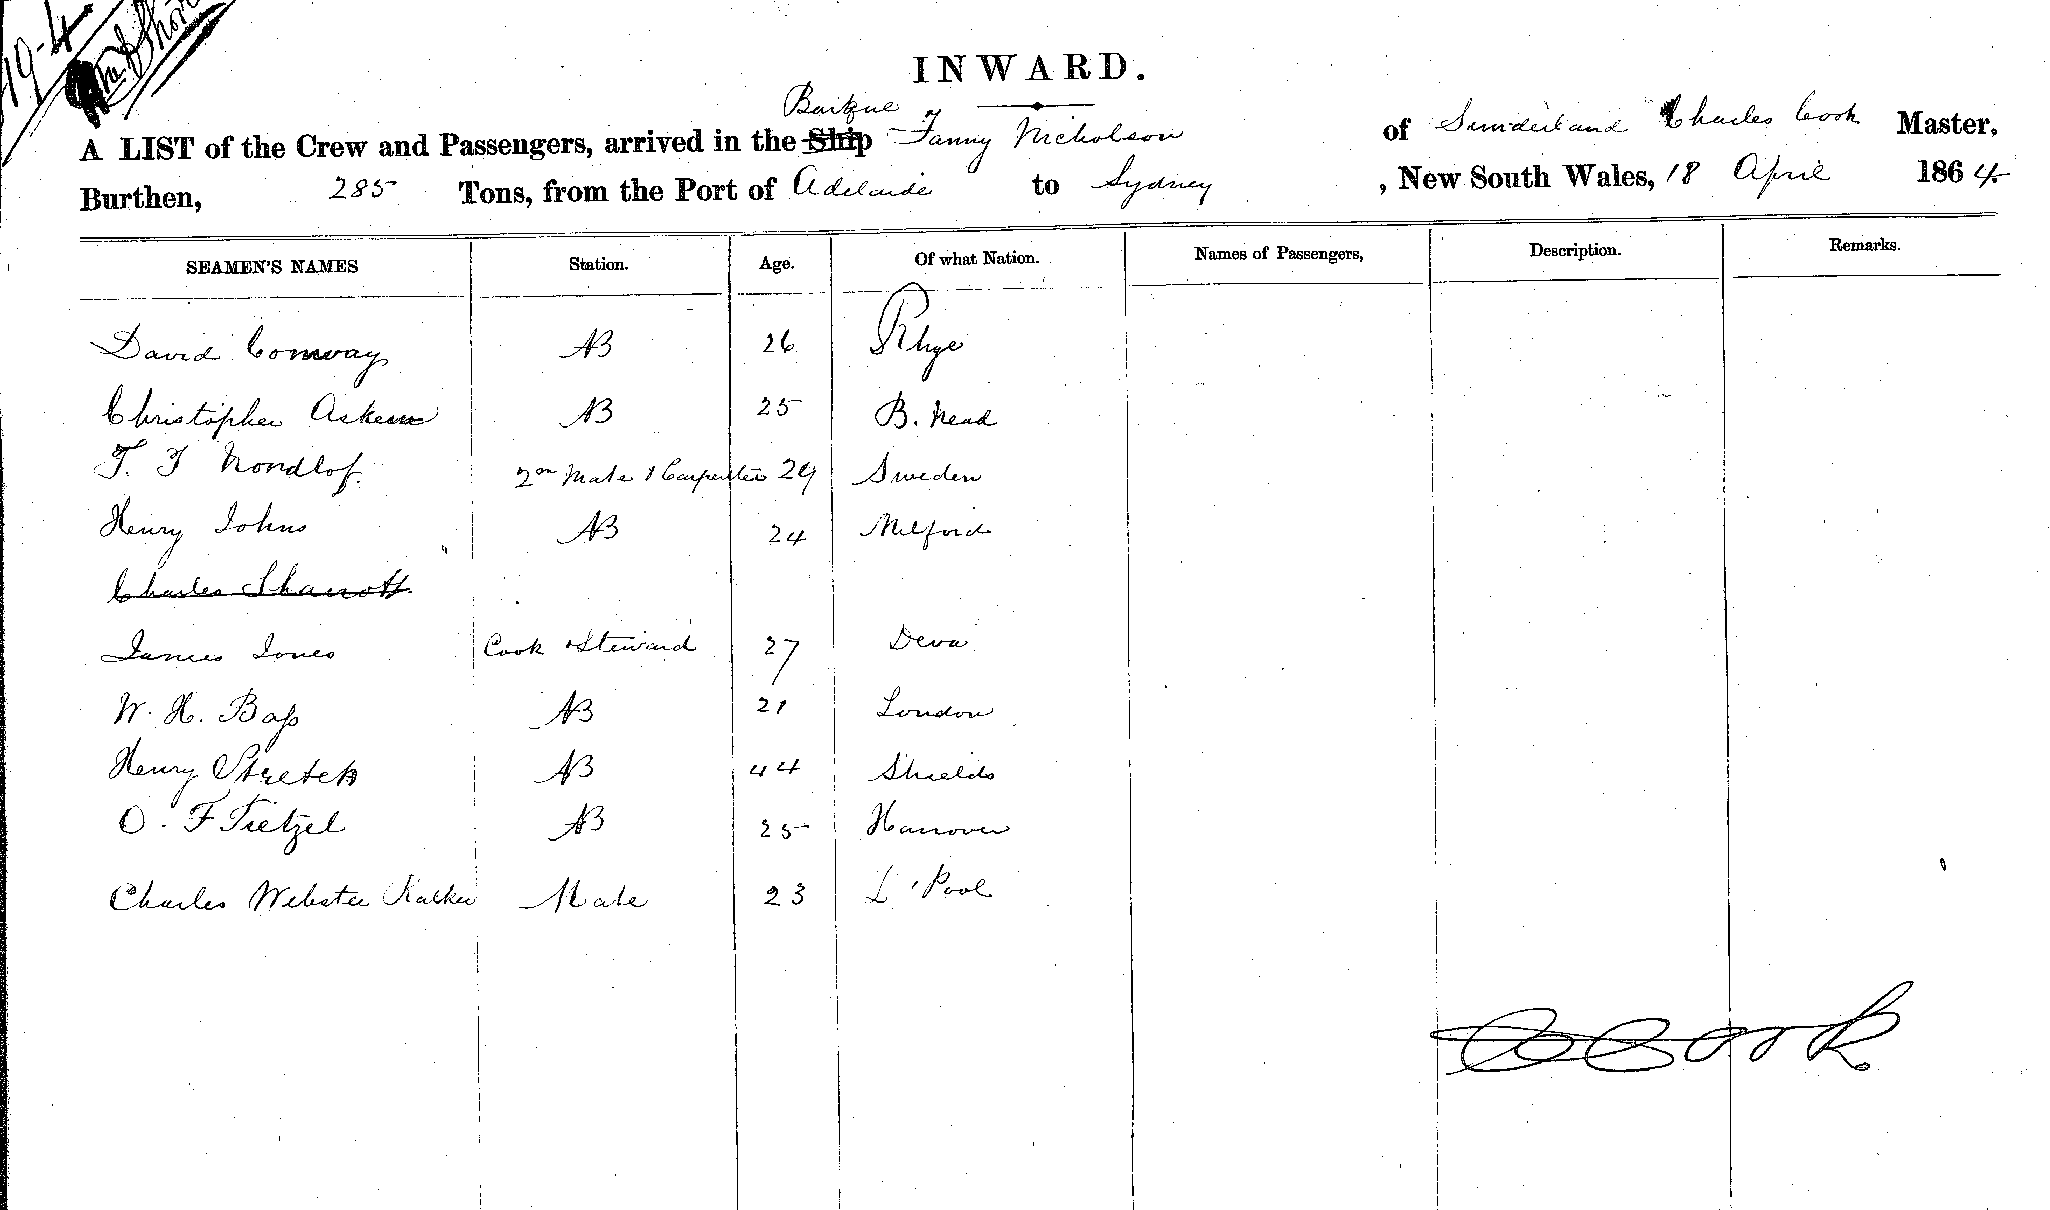 19-4
INWARD.
Barque
A LIST of the Crew and Passengers, arrived in the Ship Fanny Nicholson of Sunderland Charles Cook Master,
Burthen, 285 Tons, from the Port of Adelaide to Sydney, New South Wales, 18 April 1864
SEAMEN'S NAMES Station. Age. Of what Nation. Names of Passengers, Description. Remarks.
David Conway AB 26 Rhye
Christopher Askew AB 25 B. Head
T. F Nondlof 2nd Mate & Carpenter 29 Sweden
Henry Johns AB 24 Milford
Charles Sharrott
James Jones Cook & Steward 27 Deva
W. H. Bass AB 21 London
Henry Stretch AB 44 Shields
O. F Tietzel AB 25 Hanover
Charles Webster Mate 23 L'Pool
C Cook